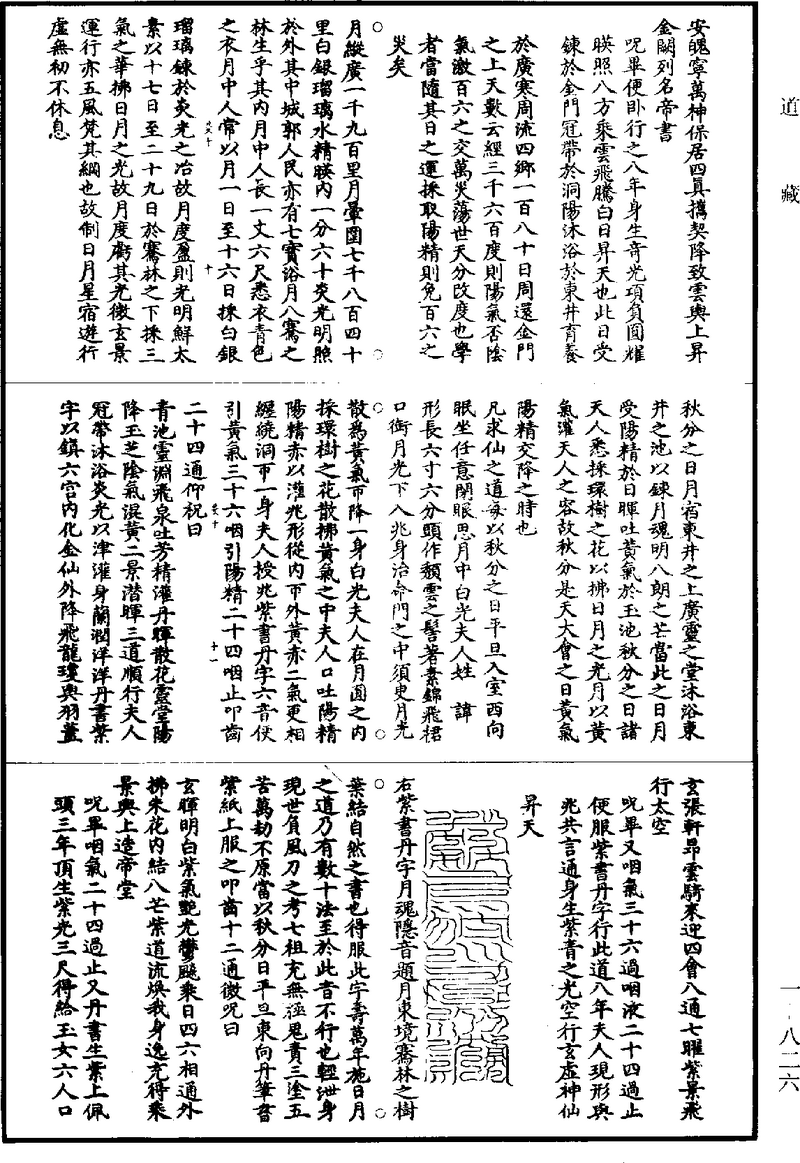 道藏
安魄寧萬神保居四真攜契降致雲輿上昇
金闕列名帝書
呪畢便臥行之八年身生奇光項負圓耀
暎照八方乘雲飛騰白日昇天也此日受
鍊於金門冠帶於洞陽沐浴於東井育養
於廣寒周流四鄉一百八十日周還金門
之上天數云經三千六百度則陽氣否陰
氣激百六之交萬災蕩世天分改度也學
者當隨其日之運採取陽精則免百六之
災矣
月縱廣一千九百里月暈圍七千八百四十
里白銀瑠璃水精暎內一分六十炎光明照
於外其中城郭人民亦有七寶浴月八騫之
林生乎其內月中人長一丈六尺悉衣青色
之衣月中人常以月一日至十六日採白銀
瑠璃鍊於炎光之冶故月度盈則光明鮮太
素以十七日至二十九日於騫林之下採三
氣之華拂日月之光故月度虧其光微玄景
運行亦五風梵其綱也故制日月星宿遊行
虛無初不休息
秋分之日月宿東井之上廣靈之堂沐浴東
井之池以鍊月魂明八朗之芒當此之日月
受陽精於日暉吐黃氣於玉池秋分之日諸
天人悉採環樹之花以拂日月之光月以黃
氣灌天人之容故秋分是天大會之日黃氣
陽精交降之時也
凡求仙之道每以秋分之日平旦入室西向
眠坐任意閉眼思月中白光夫人姓　諱
形長六寸六分頭作頹雲之髻著素錦飛裙
口銜月光下入兆身治命門之中須臾月光
散為黃氣帀降一身白光夫人在月圓之內
採環樹之花散拂黃氣之中夫人口吐陽精
陽精赤以灌兆形從內帀外黃赤二氣更相
纏繞洞帀一身夫人授兆紫書丹字六音使
引黃氣三十六咽引陽精二十四咽止叩齒
二十四通仰祝曰
青池靈淵飛泉吐芳精灌丹暉散花靈堂陽
降玉芝陰氣混黃二景潛暉三道順行夫人
冠帶沐浴炎光以津灌身蘭潤洋洋丹書紫
字以鎮六宮內化金仙外降飛龍瓊輿羽蓋
玄張軒昂雲騎來迎四會八通七曜紫景飛
行太空
呪畢又咽氣三十六過咽液二十四過止
便服紫書丹字行此道八年夫人現形與
兆共言通身生紫青之光空行玄虛神仙
昇天
右紫書丹字月魂隱音題月東境騫林之樹
葉結自然之書也得服此字壽萬年施日月
之道乃有數十法至於此音不行也輕泄身
現世負風刀之考七祖充無極鬼責三塗五
苦萬劫不原當以秋分日平旦東向丹筆書
紫紙上服之叩齒十二通微呪曰
玄暉明白紫氣艷光鬱飈乘日四六相通外
拂朱花內結八芒紫道流煥我身逸充得乘
景輿上造帝堂
呪畢咽氣二十四過止又丹書生素上佩
頭三年頂生紫光三尺得給玉女六人口
一-八二六